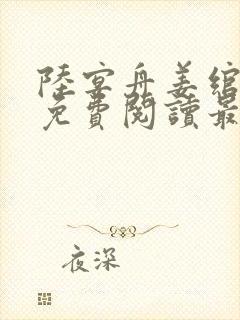 陸宴舟姜綰
免費閱讀最
夜深